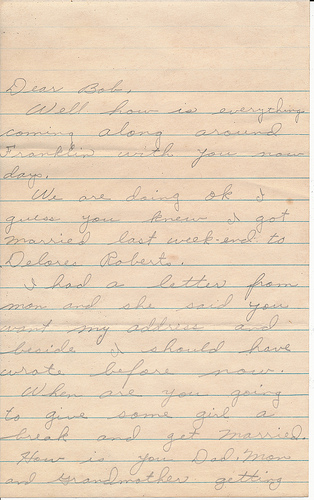 Dear Bob,
Well how is everything
coming along around
Franklin with you now
days.
We are doing ok I
guess you knew I got
married last week-end to
Delores Roberts.
I had a letter from
mom and she said you
want my address and
beside I should have
wrote before now.
When are you going
to give some girl a
break and get married.
How is you Dad, Mom
and Grandmother getting